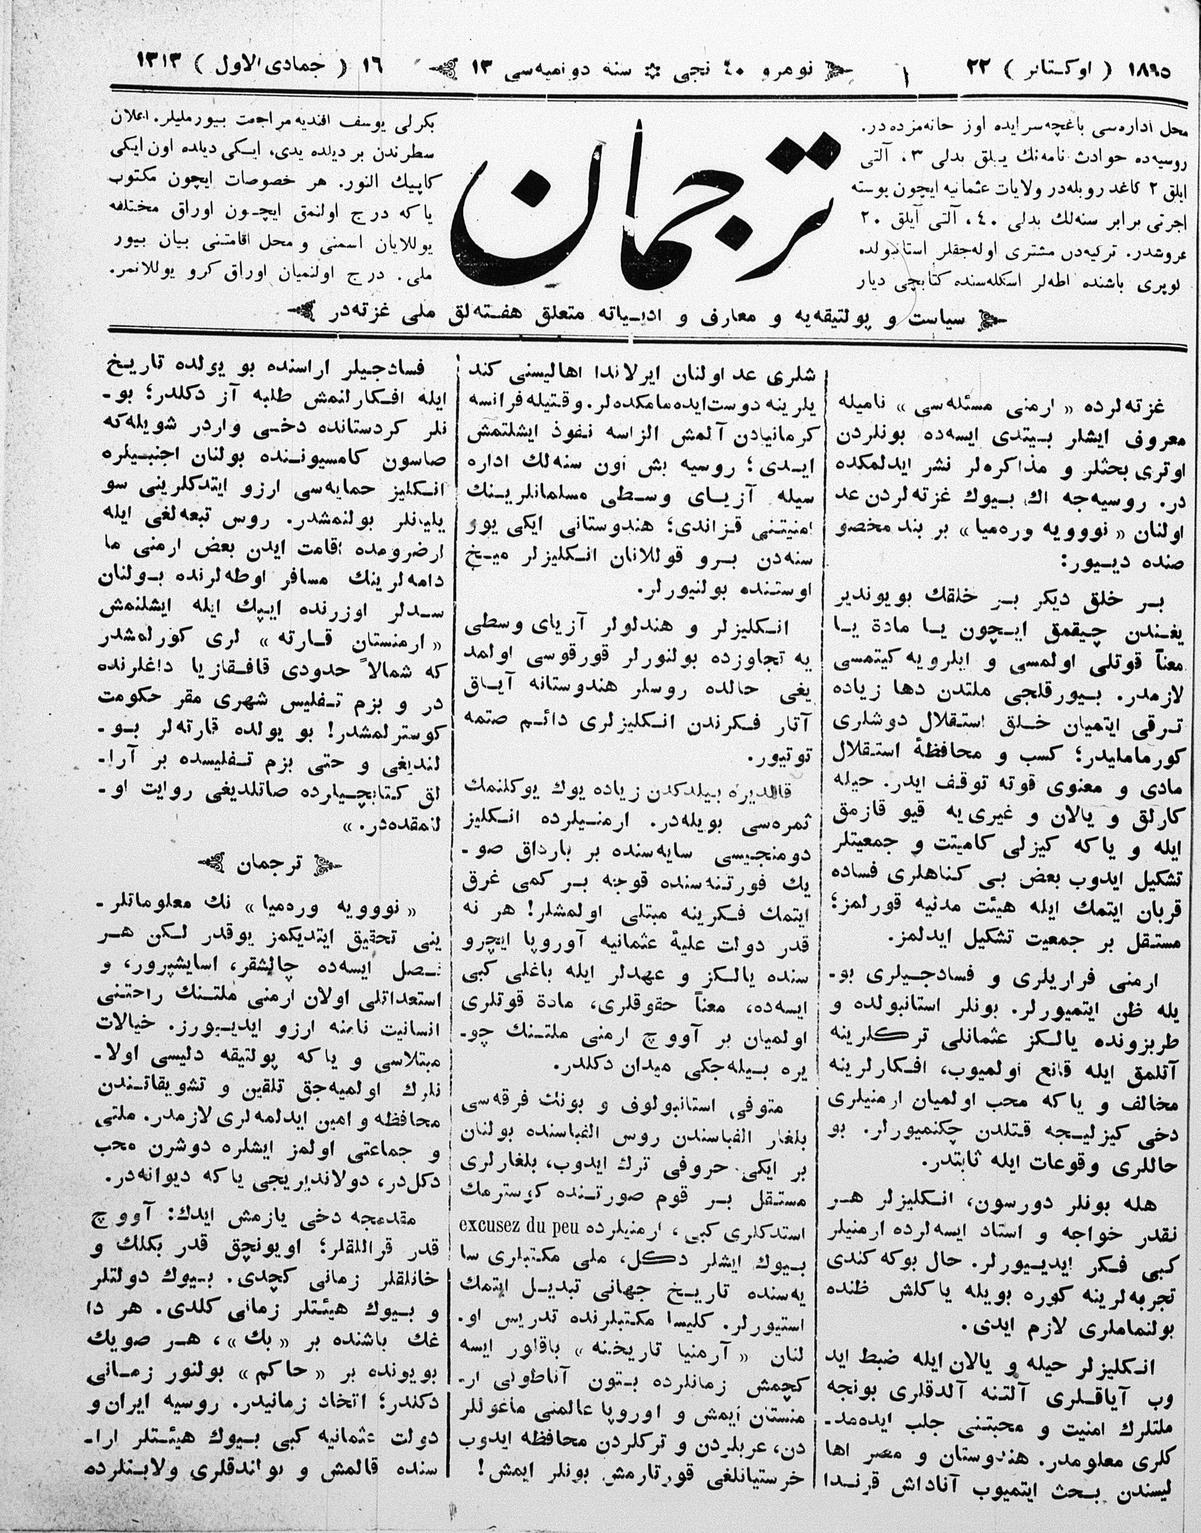 ١٨٩٥ ( اوكتابر ) ٢٢
نومرو ٤٠ نجی ✡ سنه دونامیه‌سی ١٣
١٦ ( جمادی الاول ) ١٣١٣
محل اداره‌سی باغچه‌سرایده اوز خانه‌مزده‌در.
روسیه‌ده حوادث نامه‌نك ییلق بدلی ٣، آلتی
ایلق ٢ كاغد روبله‌در ولایات عثمانیه ایچون پوسته
اجرتی برابر سنه‌لك بدلی ٤٠، آلتی آیلق ٢٠
غروشدر. تركیه‌دن مشتری اوله‌جقلر استانبولده
كوپری باشنده اطه‌لر اسكله‌سنده كتابچی دیار
ترجمان
بكرلی یوسف افندیه مراجعت بیورملیلر. اعلان
سطرندن بر دیلده یدی، ایكی دیلده اون ایكی
كاپیك النور. هر خصوصات ایچون مكتوب
یا كه درج اولنمق ایچون اوراق مختلفه
یوللایان اسمنی و محل اقامتنی بیان بیور
ملی. درج اولنمیان اوراق كرو یوللانمز.
سیاست و پولتیقه‌یه و معارف و ادبیاته متعلق هفته‌لق ملی غزته‌در
غزته‌لرده « ارمنی مسئله‌سی » نامیله
معروف ایشلر بیتدی ایسه‌ده بونلردن
اوتری بحثلر و مذاكره‌لر نشر ایدلمكده
در. روسیه‌جه اك بیوك غزته‌لردن عد
اولنان « نوویه وره‌میا » بر بند مخصو
صنده دییور:
بر خلق دیكر بر خلقك بویوندیر
یغندن چیقمق ایچون یا مادةً یا
معناً قوتلی اولمسی و ایلرویه كیتمسی
لازمدر. بیورقلجی ملتدن دها زیاده
ترقی ایتمیان خلق استقلال دوشلری
كورمامليدر؛ كسب و محافظۀ استقلال
مادی و معنوی قوته توقف ایدر. حیله
كارلق و یالان و غیری‌یه قیو قازمق
ایله و یا كه كیزلی كامیتت و جمعیتلر
تشكیل ایدوب بعض بی كناهلری فساده
قربان ایتمك ایله هیئت مدنیه قورلمز؛
مستقل بر جمعیت تشكیل ایدلمز.
ارمنی فراریلری و فسادجیلری بو-
یله ظن ایتمیورلر. بونلر استانبولده و
طربزونده یالكز عثمانلی تركلرینه
آتلمق ایله قانع اولمیوب، افكارلرینه
مخالف و یا كه محب اولمیان ارمنیلری
دخی كیزلیجه قتلدن چكنمیورلر. بو
حاللری وقوعات ایله ثابتدر.
هله بونلر دورسون، انكلیزلر هر
نقدر خواجه و استاد ایسه‌لرده ارمنیلر
كبی فكر ایدییورلر. حال بوكه كندی
تجربه‌لرینه كوره بویله یاكلش ظنده
بولنماملری لازم ایدی.
انكلیزلر حیله و یالان ایله ضبط اید
وب آیاقلری آلتنه آلدقلری بونجه
ملتلرك امنیت و محبتنی جلب ایده‌مد-
كلری معلومدر. هندوستان و مصر اها
لیسندن بحث ایتمیوب آناداش قرندا
شلری عد اولنان ایرلاندا اهالیسنی كند
یلرینه دوست ایده‌مامكده‌لر. وقتیله فرانسه
كرمانیادن آلمش الزاسه نفوذ ایشلتمش
ایدی؛ روسیه بش اون سنه‌لك اداره
سیله آزیای وسطی مسلمانلرینك
امنیتنی قزاندی؛ هندوستانی ایكی یوز
سنه‌دن برو قوللانان انكلیزلر میخ
اوستنده بولنیورلر.
انكلیزلر و هندلولر آزیای وسطی
یه تجاوزده بولنورلر قورقوسی اولمد
یغی حالده روسلر هندوستانه آیاق
آتار فكرندن انكلیزلری دائم صتمه
توتیور.
قالدیره بیلدكدن زیاده یوك یوكلنمك
ثمره‌سی بویله‌در. ارمنیلرده انكلیز
دومنجیسی سایه‌سنده بر بارداق صو-
یك فورتنه‌سنده قوجه بر كمی غرق
ایتمك فكرینه مبتلی اولمشلر! هر نه
قدر دولت علیۀ عثمانیه آوروپا ایچرو
سنده یالكز و عهدلر ایله باغلی كبی
ایسه‌ده، معناً حقوقلری، مادةً قوتلری
اولمیان بر آووچ ارمنی ملتنك چو-
یره بیله‌جكی میدان دكلدر.
متوفی استانبولوف و بونك فرقه‌سی
بلغار الفباسندن روس الفباسنده بولنان
بر ایكی حروفی ترك ایدوب، بلغارلری
مستقل بر قوم صورتنده كوسترمك
استدكلری كبی، ارمنیلرده excusez du peu
بیوك ایشلر دكل، ملی مكتبلری سا
یه‌سنده تاریخ جهانی تبدیل ایتمك
استیورلر. كلیسا مكتبلرنده تدریس او-
لنان « آرمنیا تاریخنه » باقلور ایسه
كچمش زمانلرده بتون آناطولی ار-
منستان ایمش و اوروپا عالمنی ماغوللر
دن، عربلردن و تركلردن محافظه ایدوب
خرستیانلغی قورتارمش بونلر ایمش!
فسادجیلر اراسنده بو یولده تاریخ
ایله افكارلنمش طلبه آز دكلدر؛ بو-
نلر كردستانده دخی واردر شویله‌كه
صاسون كامسیوننده بولنان اجنبیلره
انكلیز حمایه‌سی ارزو ایتدكلرینی سو
یلیانلر بولنمشدر. روس تبعه‌لغی ایله
ارضرومده اقامت ایدن بعض ارمنی ما
دامه‌لرینك مسافر اوطه‌لرنده بولنان
سدلر اوزرنده ایپك ایله ایشلنمش
« ارمنستان قارته » لری كورلمشدر
كه شمالاً حدودی قافقازیا داغلرنده
در و بزم تفلیس شهری مقر حكومت
كوسترلمشدر! بو یولده قارته‌لر بو-
لندیغی و حتی بزم تفلیسده بر آرا-
لق كتابچیلرده صاتلدیغی روایت او-
لنمقده‌در. »
ترجمان
« نوویه وره‌میا » نك معلوماتلر-
ینی تحقیق ایتدیكمز یوقدر لكن هر
نصل ایسه‌ده چالشقر، اسایشپرور، و
استعداتلی اولان ارمنی ملتنك راحتنی
انسانیت نامنه ارزو ایدییورز. خیالات
مبتلاسی و یا كه پولتیقه دلیسی اولا-
نلرك اولمیه‌جق تلقین و تشویقاتندن
محافظه و امین ایدلمه‌لری لازمدر. ملتی
و جماعتی اولمز ایشلره دوشرن محب
دكلدر، دولاندیریجی یا كه دیوانه‌در.
مقدمجه دخی یازمش ایدك: آووچ
قدر قراللقلر؛ اویونچق قدر بكلك و
خانلقلر زمانی كچدی. بیوك دولتلر
و بیوك هیئتلر زمانی كلدی. هر دا
غك باشنده بر « بك »، هر صویك
بویونده بر « حاكم » بولنور زمانی
دكلدر؛ اتخاد زمانیدر. روسیه ایران و
دولت عثمانیه كبی بیوك هیئتلر ارا-
سنده قالمش و بولندقلری ولایتلرده